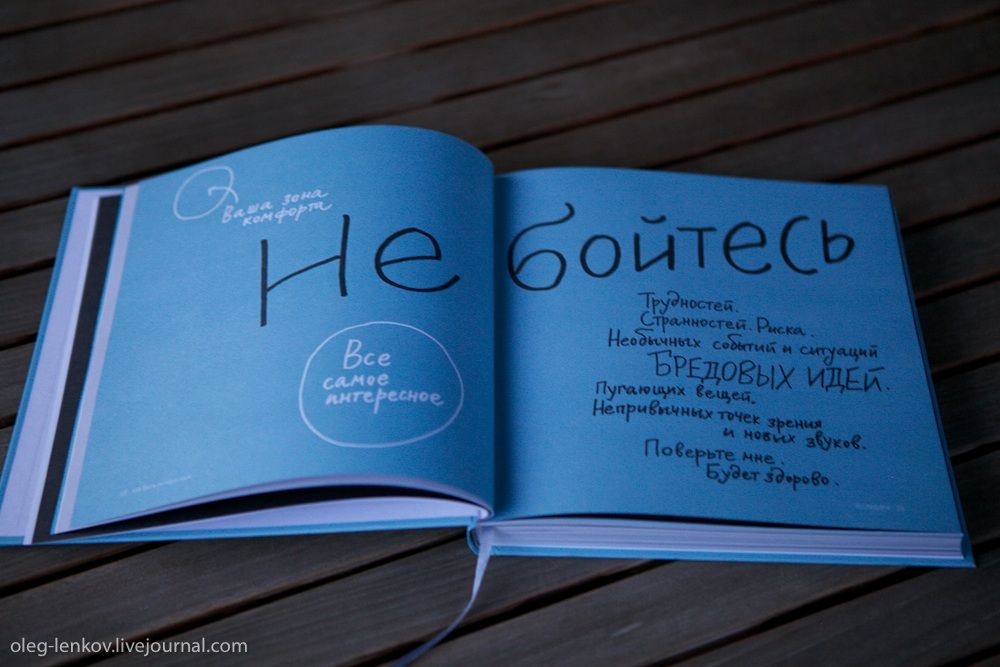 Ваша зона
комфорта
Не бойтесь
Все
самое
интересное
Трудностей.
Странностей. Риска.
Необычных событий и ситуаций
БРЕДОВЫХ ИДЕЙ.
Пугающих вещей.
Непривычных точек зрения
и новых звуков.
Поверьте мне.
Будет здорово.
oleg-lenkov.livejournal.com